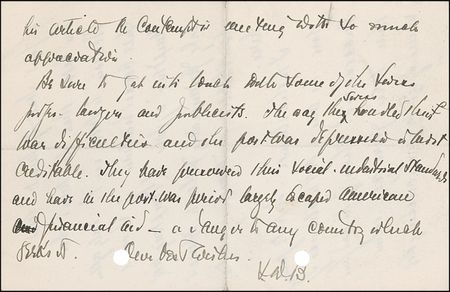 his article the Contempt is meeting with so much
appreciation.
Be sure to get into touch with some of the Swiss
profs. lawyers and publicists. The way the Swiss handled their
war difficulties and the post-war depression is most
creditable. They have preserved their social-industrial standards
and have in the post-war period largely escaped American
financial aid — a danger to any country which
seeks it. Dear best wishes.
L.D.B.